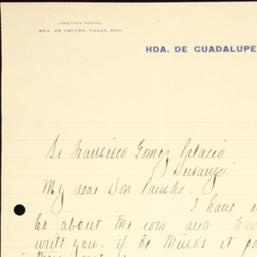 DIRECCION POSTAL
HDA. DE CRUCES, PASAN, DGO.
HDA. DE GUADALUPE
Sr Francisco Gomez Palacio
Durango
My dear Don Pancho.
I have
about the corn and
write you. if he thinks it